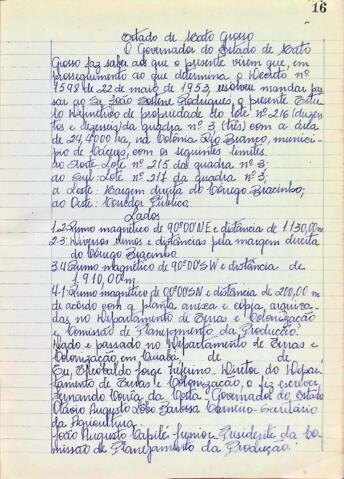 16
Estado de Mato Grosso
O Governador do Estado de Mato
Grosso faz saber aos que o presente virem que, em
prosseguimento ao que determina o Decreto nº
1598 de 22 de maio de 1953, resolveu mandar pas
sar ao Sr. João Rodrigues, o presente Títu
lo Definitivo de propriedade do lote nº 216 (duzen
tos e dezesseis) da quadra nº 3 (três) com a área
de 24,4000 ha, na Colônia Rio Branco, municí
pio de Cáceres, com os seguintes limites.
ao Norte: Lote nº 215 da quadra nº 3;
ao Sul: Lote nº 217 da quadra nº 3;
a Leste: Margem direita do Córrego Bracinho;
ao Oeste: Corredor Público.
Lados
1-2: Rumo magnético de 90º00'NE e distância de 1.130,00m
2-3: Diversos rumos e distâncias pela margem direita
do Córrego Bracinho
3-4: Rumo magnético de 90º00'SW e distância de
1.910,00m.
4-1: Rumo magnético de 00º00'SN e distância de 200,00 m
de acordo com a planta anexa e cópia arquiva
das no Departamento de Terras e Colonização
e Comissão de Planejamento da Produção.
Dado e passado no Departamento de Terras e
Colonização, em Cuiabá, de de
Eu, Jorge Diretor do Depar
tamento de Terras e Colonização, o fiz escrever,
Fernando Corrêa da Costa Governador do Estado
Augusto Lobo Barbosa Secretário
da Agricultura.
João Augusto Capilé Junior Presidente da Co
missão de Planejamento da Produção.